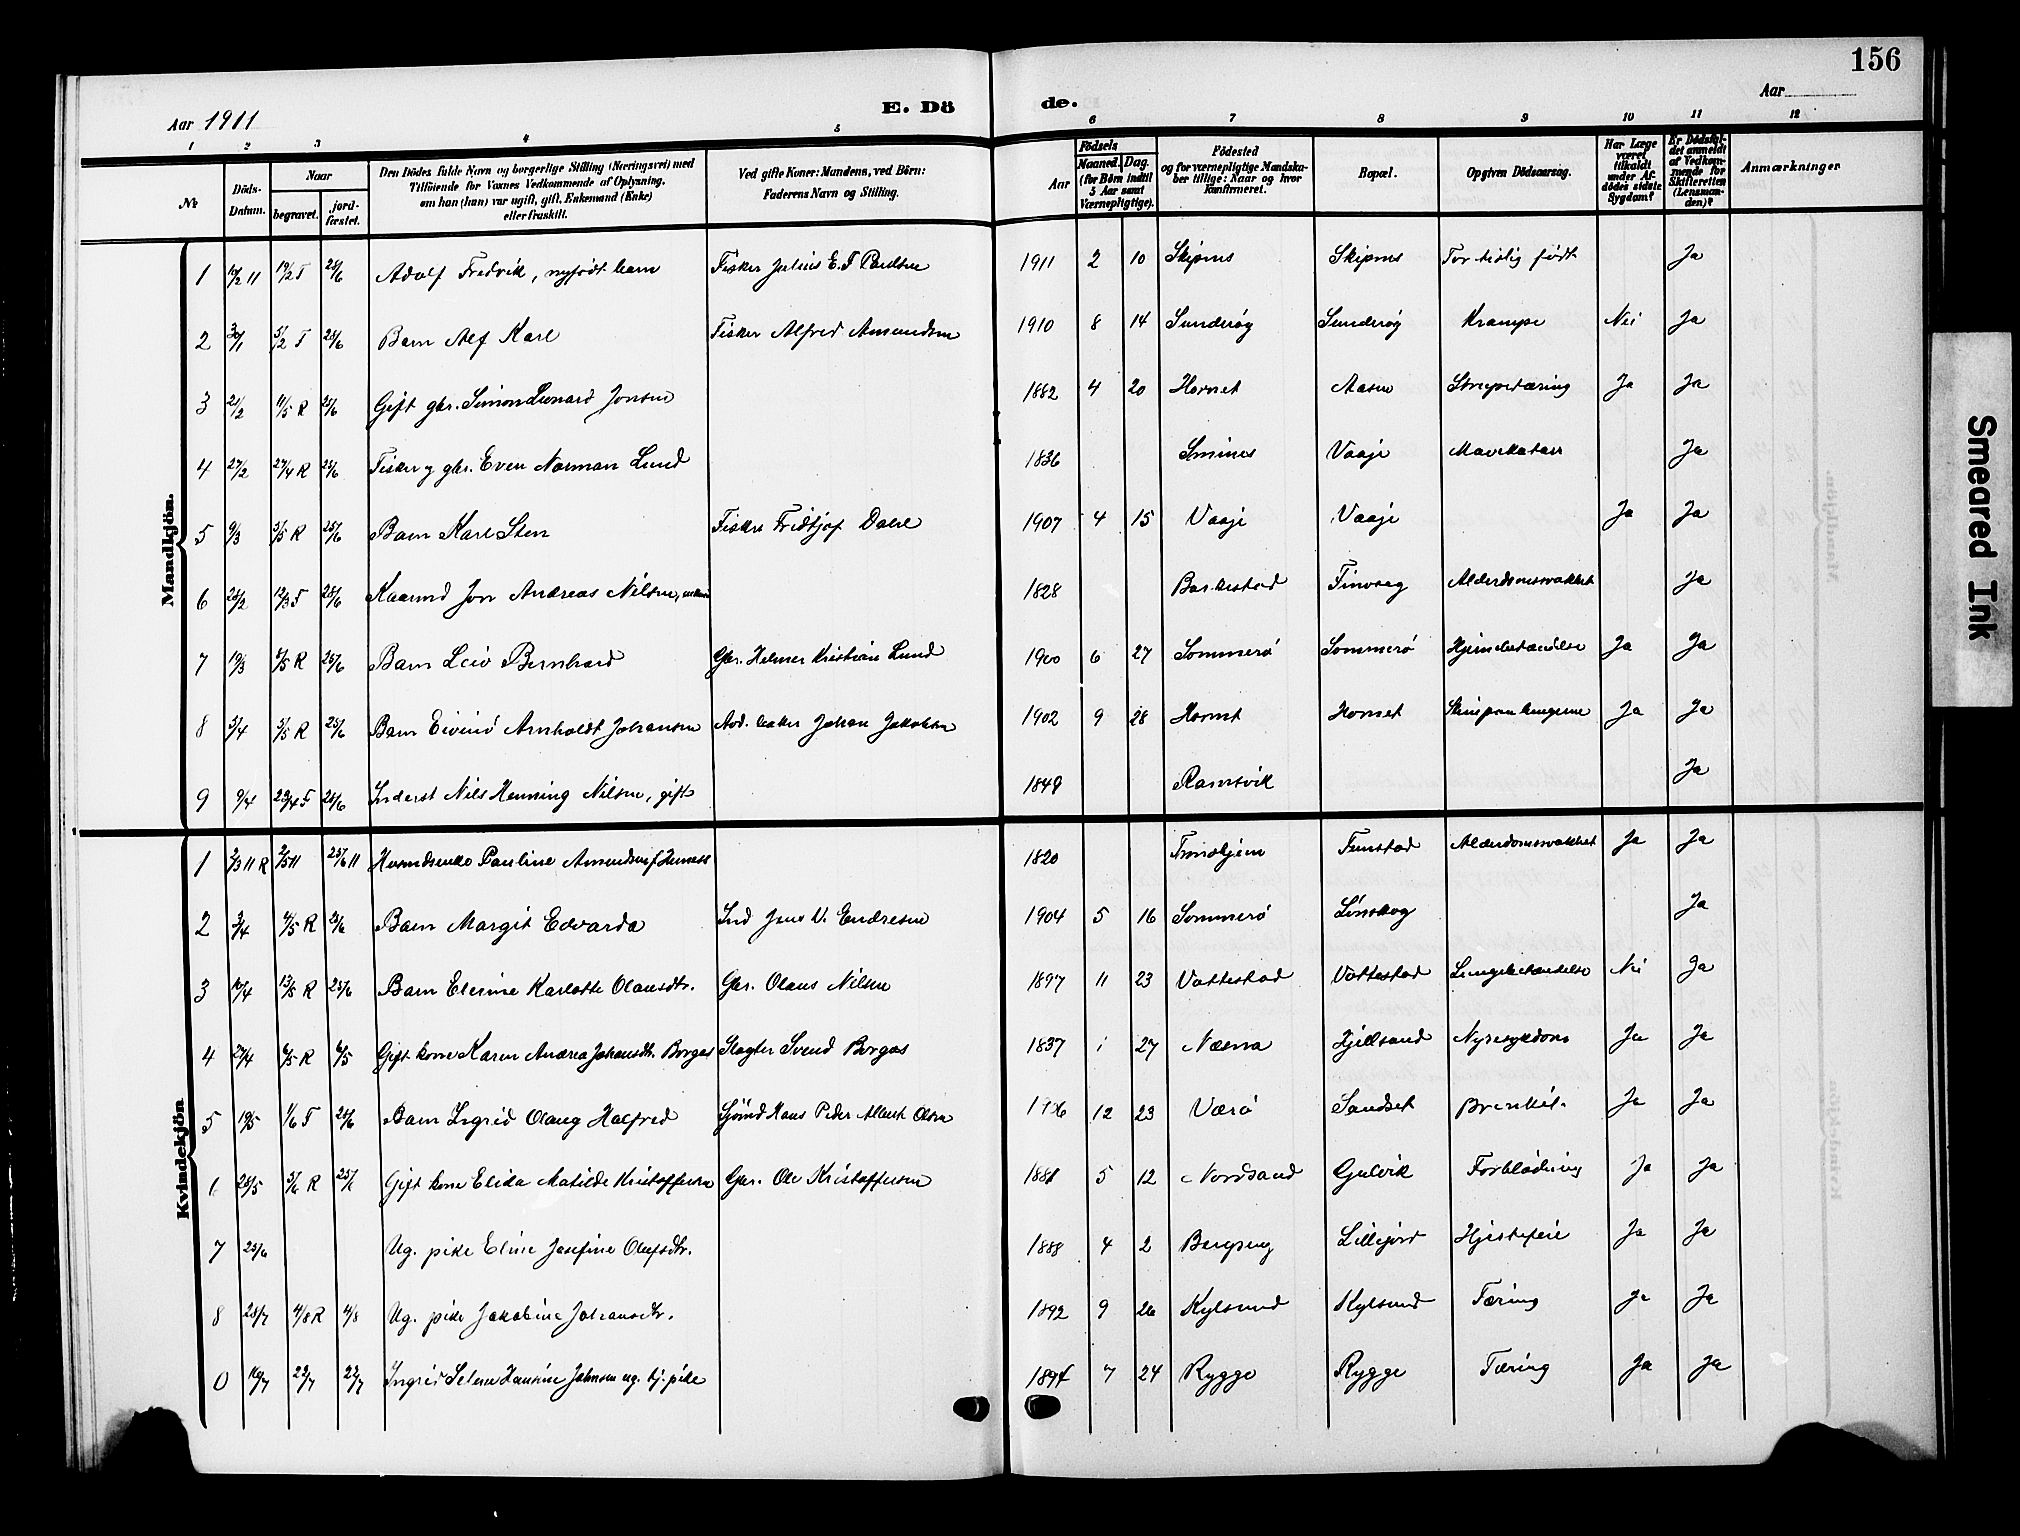 156
Aar 1911
E. Dö
de.
Aar
1 2 3 4 5 6 7 8 9 10 11 12
№
Döds-Datum.
Naar
begravet.
jord-fæstet.
Den Dödes fulde Navn og borgerlige Stilling (Næringsvei) med
Tilföiende for Voxnes Vedkommende af Oplysning,
om han (hun) var ugift, gift, Enkemand (Enke)
eller fraskilt.
Ved gifte Koner: Mandens, ved Börn:
Faderens Navn og Stilling.
Födsels
Aar
Maaned. Dag.
(for Börn indtil 5 Aar samt Værnepligtige).
Födested
og for værnepligtige Mandskaber tillige: Naar og hvor Konfirmeret.
Bopæl.
Opgiven Dödsaarsag.
Har Læge været tilkaldt under Afdödes sidste Sygdom?
Er Dödsfaldet anmeldt af Vedkommende for Skifteretten (Lensmanden)?
Anmærkninger
Mandkjön.
1 10/2 11 19/2 T 25/6 Adolf Fredrik, nyfödt barn Fisker Julius E. T Paulsen 1911 2 10 Skipnes Skipnes For tidlig født Ja
2 30/1 5/2 T 25/6 Barn Alf Karl Fisker Alfred Amundsen 1910 8 14 Sunderøy Sunderøy Krampe Nei Ja
3 21/2 4/5 R 25/6 Gift gbr. Simon Leonard Jonsen 1882 4 20 Hovnet Aasen Strupetæring Ja Ja
4 27/2 27/4 R 25/6 Fisker og gbr. Even Norman Lund 1836 Smines Vaaje Mavekatar Ja
5 9/3 5/5 R 25/6 Barn Karl Sten Fisker Fridtjof Dahl 1907 4 15 Vaaje Vaaje Ja Ja
6 25/2 12/3 T 25/6 Kaarmd Jon Andreas Nilsen, 1828 Barkestad Finvaag Alderdomssvakhet Ja
7 19/3 5/5 R 25/6 Barn Leiv Bernhard Gbr. Helmer Kristian Lund 1900 6 27 Sommerø Sommerø Hjernebetændelse Ja Ja
8 5/4 5/5 R 25/6 Barn Eivind Arnholdt Johansen Johan Jakobsen 1902 9 28 Hovnet Hovnet Ja Ja
9 9/4 23/4 T 25/6 Inderst Nils Henning Nilsen, gift 1849 Ramsvik Ja
Kvindekjön
1 2/3 11 R 2/5 11 25/6 11 Husmdsenke Pauline Amundsen f. 1820 Trondhjem Finstad Alderdomssvakhet Ja Ja
2 3/4 4/5 R 25/6 Barn Margit Edvarda Ind Jens U. Endresen 1904 5 16 Sommerø Lønskog Ja
3 10/4 13/5 R 25/6 Barn Elerine Karlotte Olausdtr. Gbr. Olaus Nilsen 1897 11 23 Vottestad Vottestad Lungebetændelse Nei Ja
4 27/4 6/5 R 6/5 Gift kone Karen Andrea Johansdtr. Borgos Slagter Svend Borgos 1837 1 27 Næsna Gjellsand Nyresykdom Ja Ja
5 19/5 1/6 T 25/6 Barn Ingrid Olaug Halfred Sjömd Hans Peder Albert Olsen 1906 12 23 Værö Sandset Ja Ja
1 28/5 5/6 R 25/6 Gift kone Elida Matilde Kristoffersen Gbr. Ole Kristoffersen 1881 5 12 Nordsand Gulvik Forblødning Ja Ja
7 25/6 Ug. pike Eline Josefine Olufsdtr. 1888 4 2 Bergseng Lillefjord Hjertefeil Ja Ja
8 28/7 4/8 R 4/8 Ug. pike Jakobine Johansdtr. 1892 9 26 Kylsund Kylsund Tæring Ja Ja
0 19/7 22/7 22/7 Ingrid Selma Hansine Johnsen ug. tj. pike 1894 7 24 Rygge Rygge Tæring Ja Ja
Smeared Ink